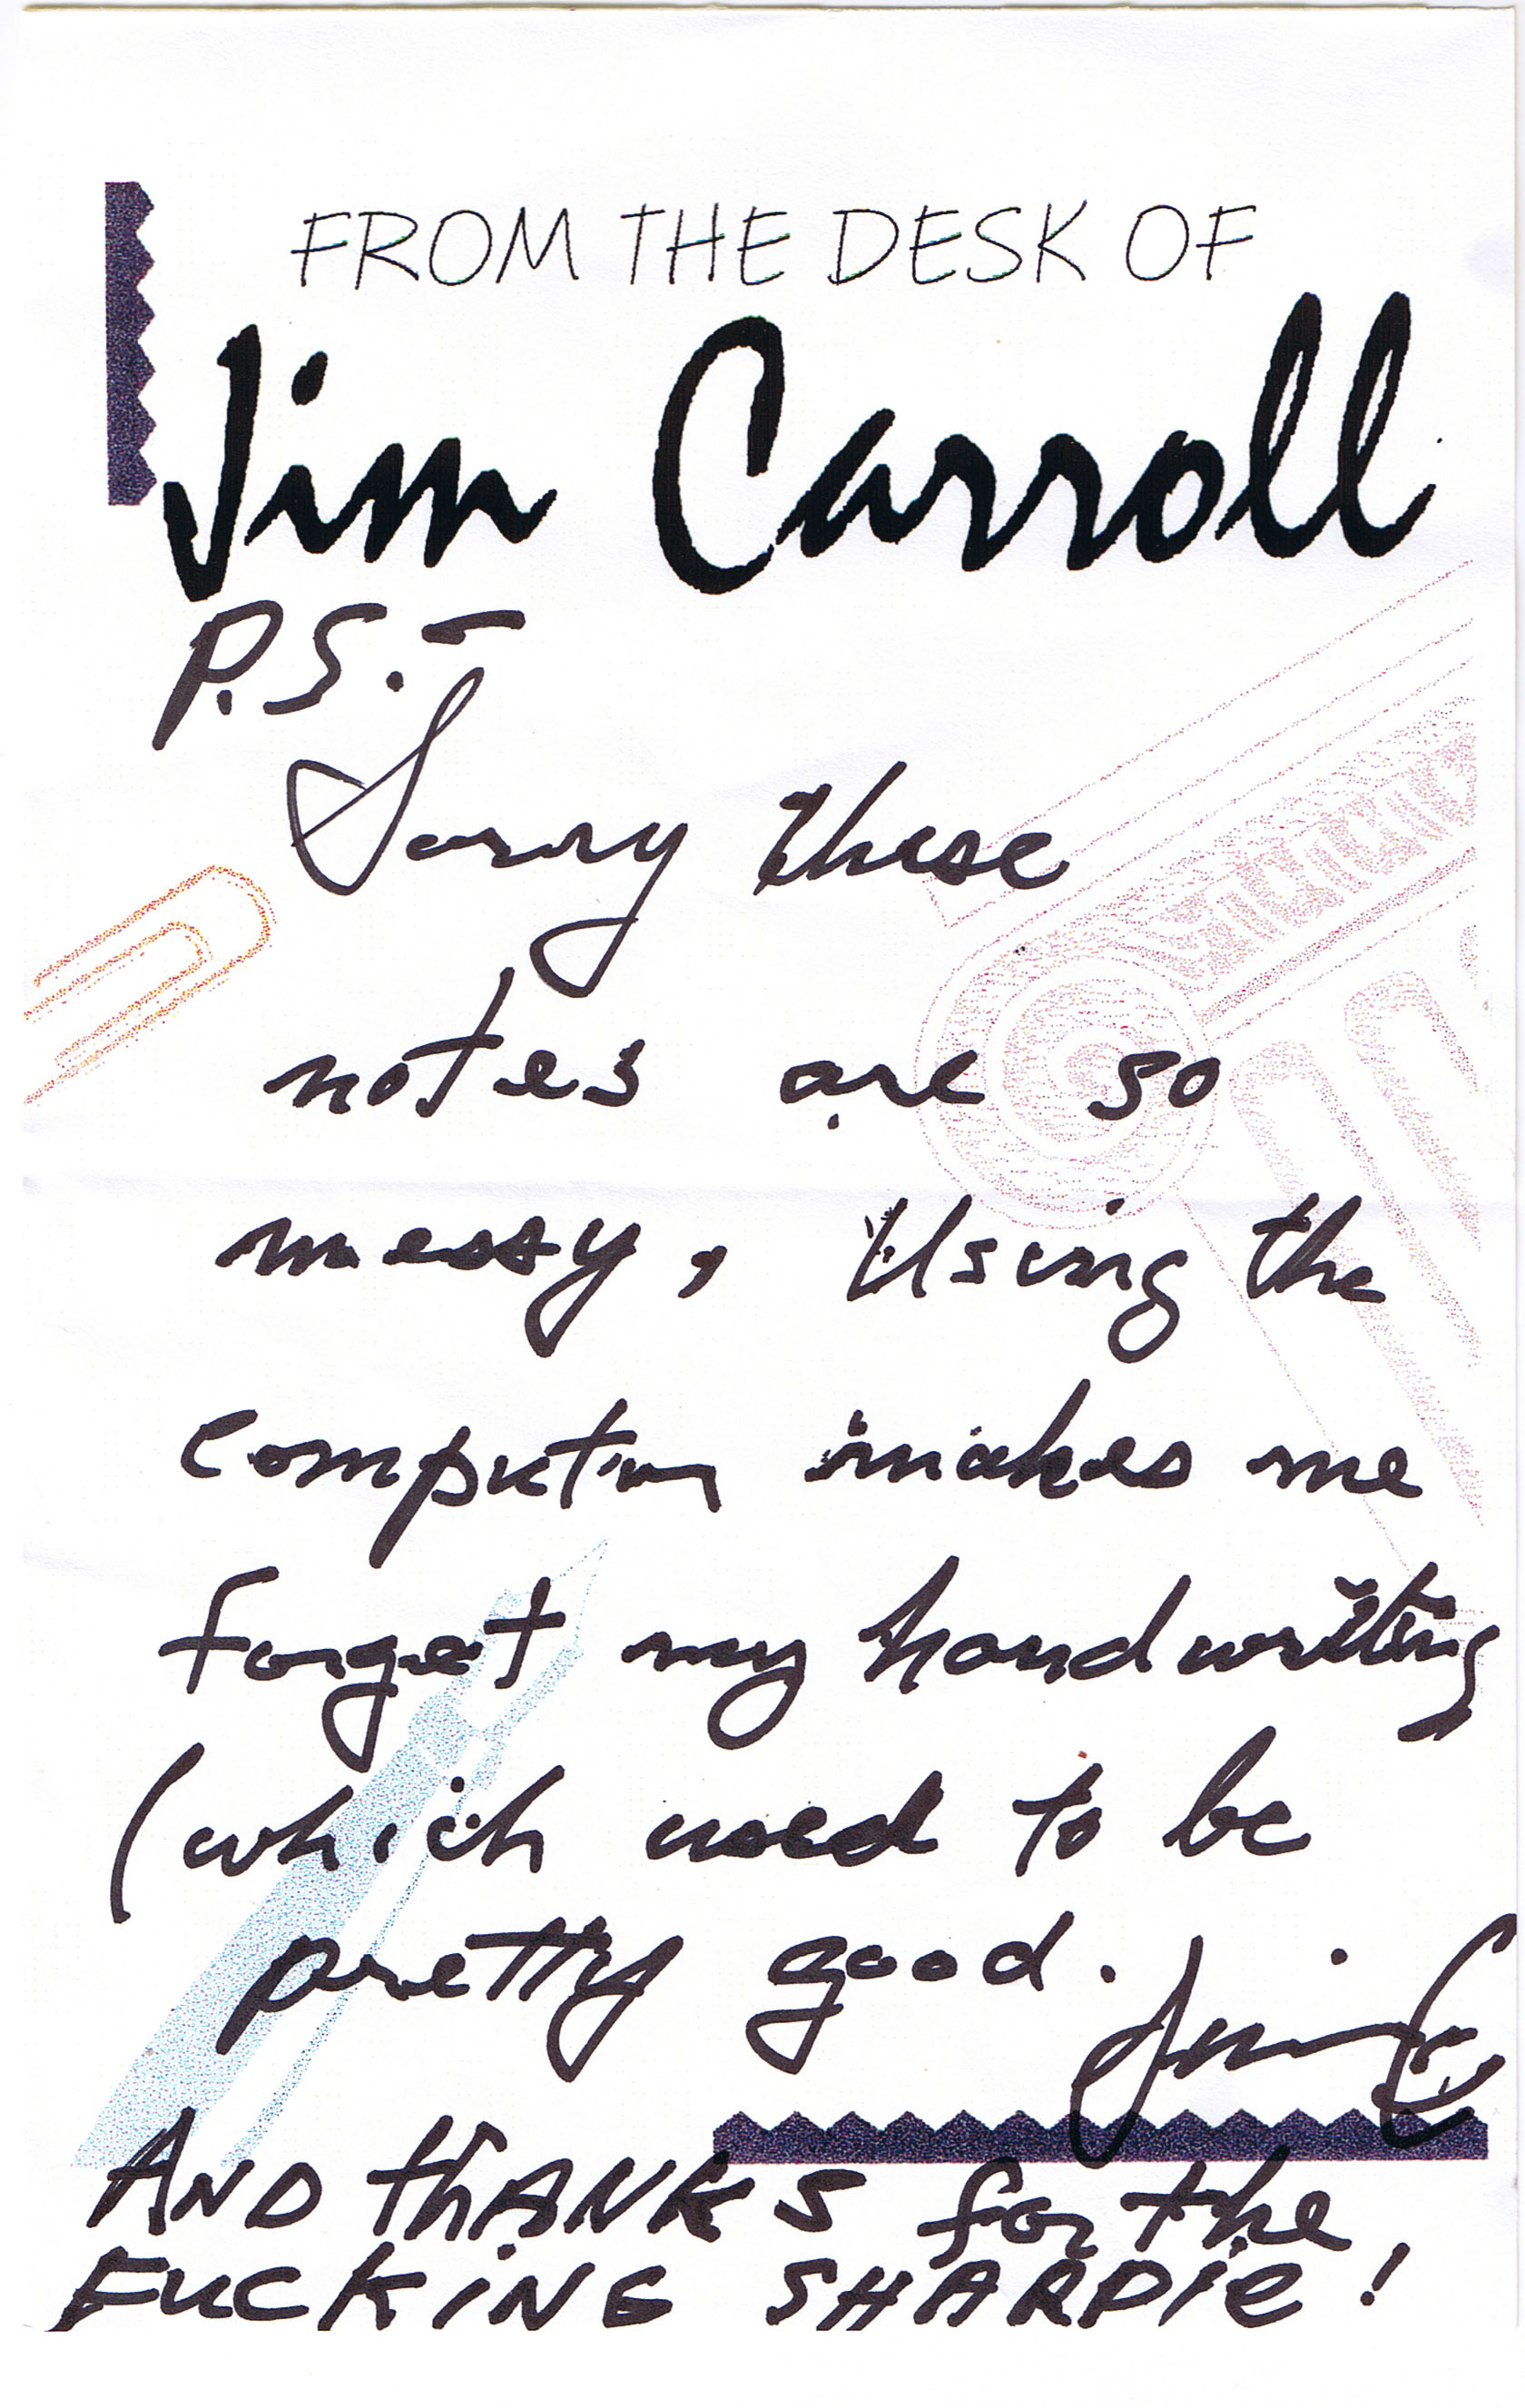 FROM THE DESK OF
Jim Carroll
P.S. –
Sorry these
notes are so
messy, Using the
computer makes me
forget my handwriting
(which used to be
pretty good.
Jim C
AND thANKS for the
FUCKiNG SHARPie!